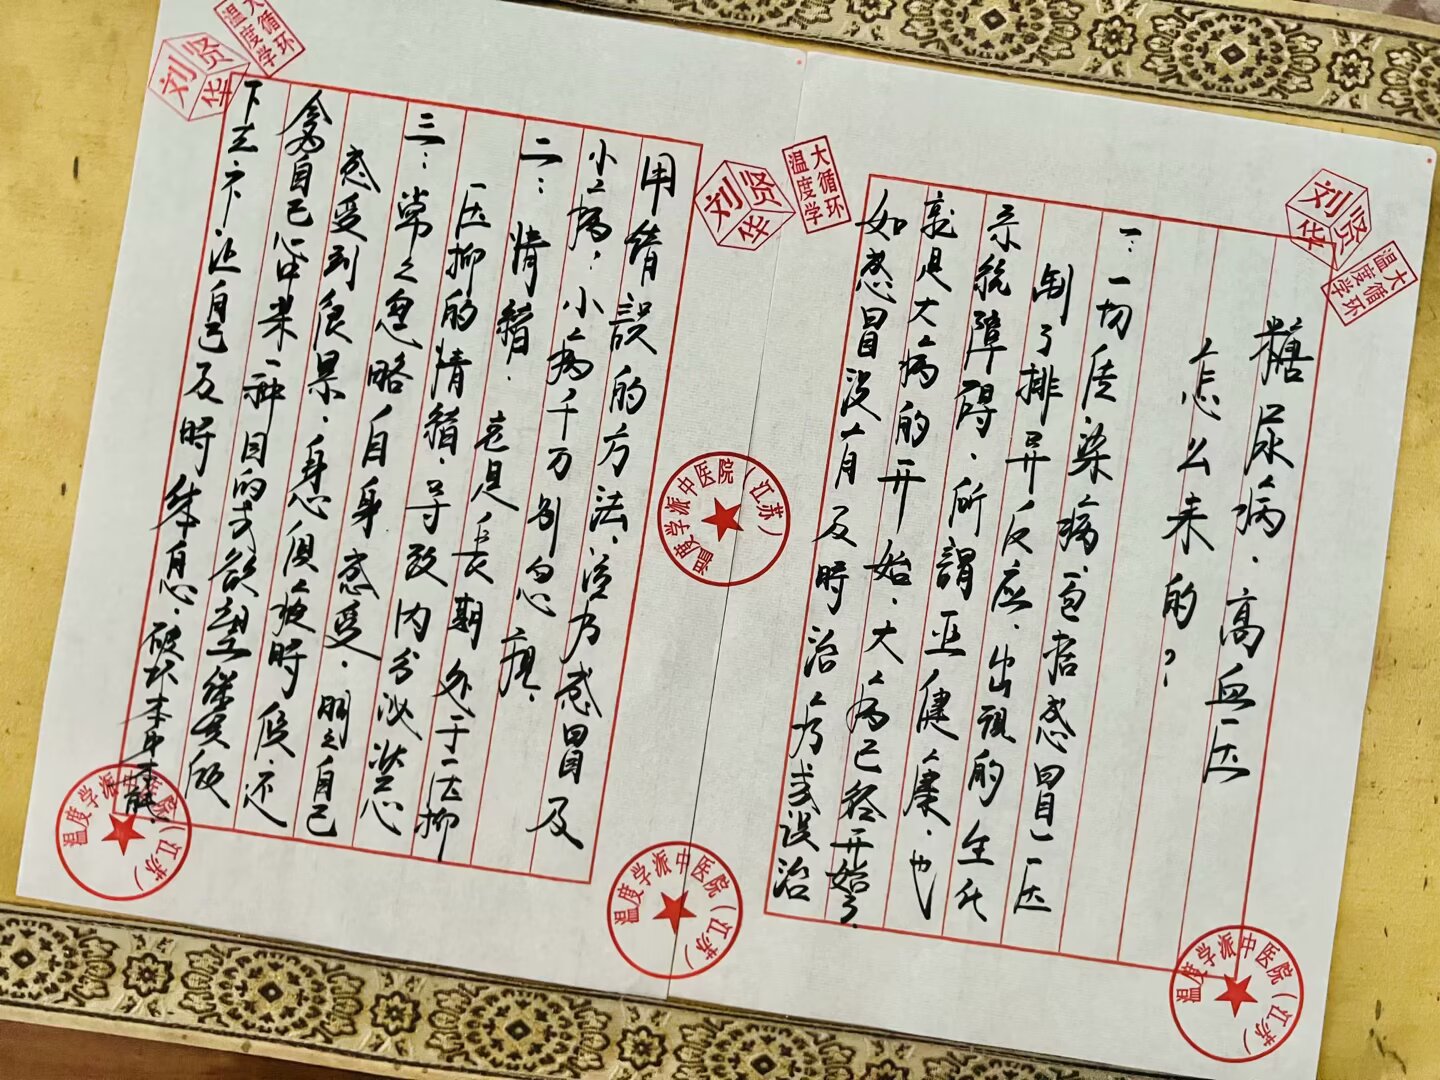 糖尿病、高血压
怎么来的？
一：一切传染病，包括感冒，压
制了排异反应，出现的生化
系统障碍，所謂亚健康，也
就是大病的开始，大病已经开始了。
如感冒没有及時治疗或误治
用错誤的方法，治疗感冒及
小病，小病千万别忽视。
二：情緒，老是長期处于压抑
压抑的情緒，导致内分泌状态
三：常之忽略自身感受，明之自己
感受到很累，身心俱疲時，但还
贪自己心中某一种目的去欲望继续留
下去，不让自己及時休息，破坏本身本能。
刘贤华
大循环
温度学
刘贤华
大循环
温度学
刘贤华
大循环
温度学
温度学派中医院（江苏）
温度学派中医院（江苏）
温度学派中医院（江苏）
温度学派中医院（江苏）